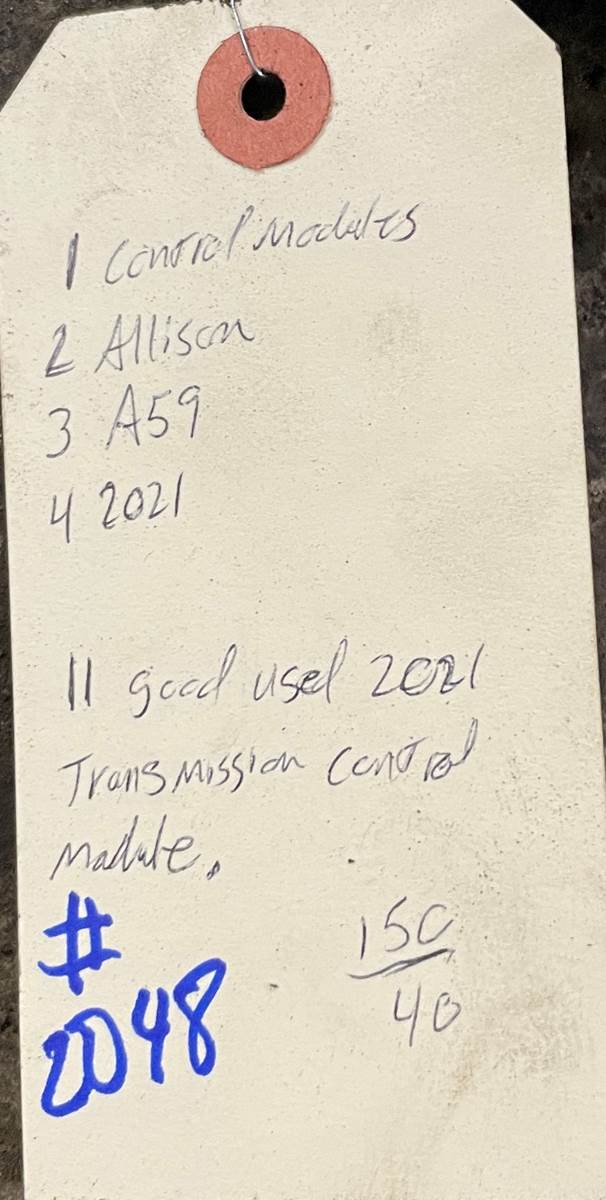 1 Control Modules
2 Allison
3 A59
4 2021
11 good used 2021
Transmission Control
Module.
#
2048
150
40